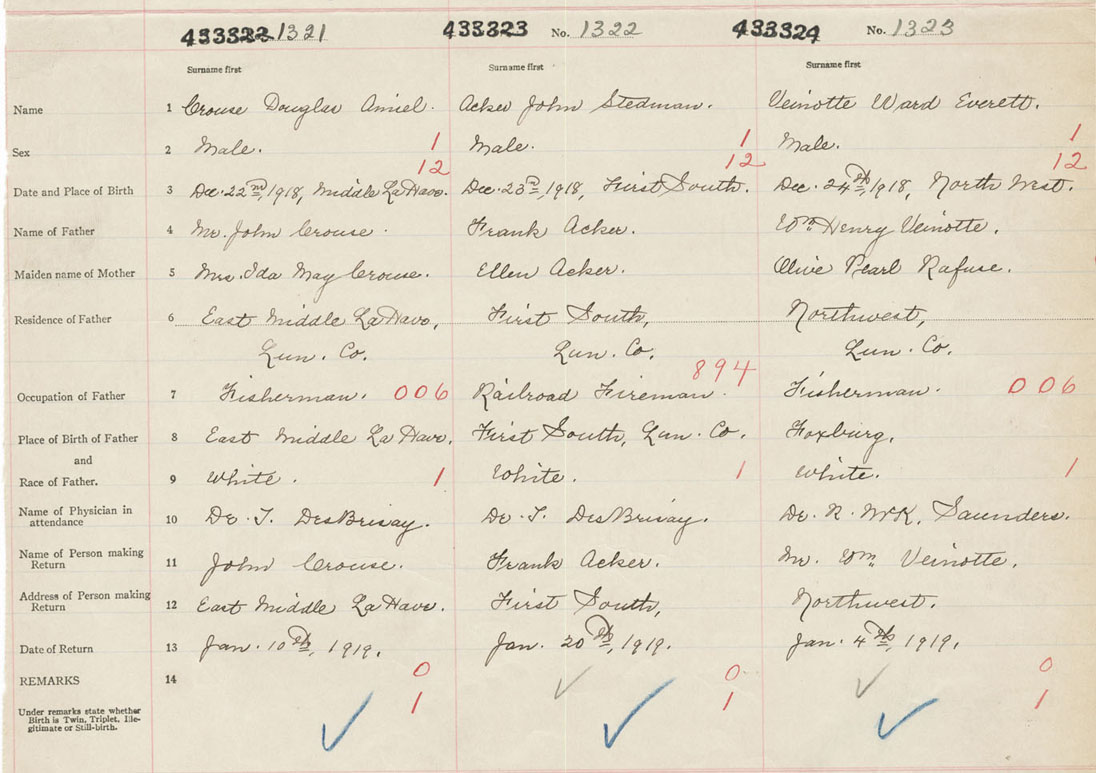 433322 1321 433323 No. 1322 433324 No. 1323
Surname first Surname first Surname first
Name 1 Crouse Douglas Amiel. Acker John Stedman. Veinotte Ward Everett.
Sex 2 Male. 1 Male. 1 Male. 1
12 12 12
Date and Place of Birth 3 Dec. 22nd, 1918, Middle LaHave. Dec. 23rd, 1918, First South. Dec. 24th, 1918, North West.
Name of Father 4 Mr. John Crouse. Frank Acker. Wm Henry Veinotte.
Maiden name of Mother 5 Mrs. Ida May Crouse. Ellen Acker. Olive Pearl Rafuse.
Residence of Father 6 East Middle LaHave, First South, Northwest,
Lun. Co. Lun. Co. Lun. Co.
894
Occupation of Father 7 Fisherman. 006 Railroad Fireman. Fisherman. 006
Place of Birth of Father 8 East Middle LaHave. First South, Lun. Co. Foxburg.
and
Race of Father. 9 White. 1 White. 1 White. 1
Name of Physician in
attendance 10 Dr. T. DesBrisay. Dr. T. DesBrisay. Dr. R. McK. Saunders.
Name of Person making
Return 11 John Crouse. Frank Acker. Mr. Wm. Veinotte.
Address of Person making
Return 12 East Middle LaHave. First South, Northwest.
Date of Return 13 Jan. 10th, 1919. Jan. 20th, 1919. Jan. 4th, 1919.
REMARKS 14 0 0 0
Under remarks state whether 1 1 1
Birth is Twin, Triplet, Ille-
gitimate or Still-birth.